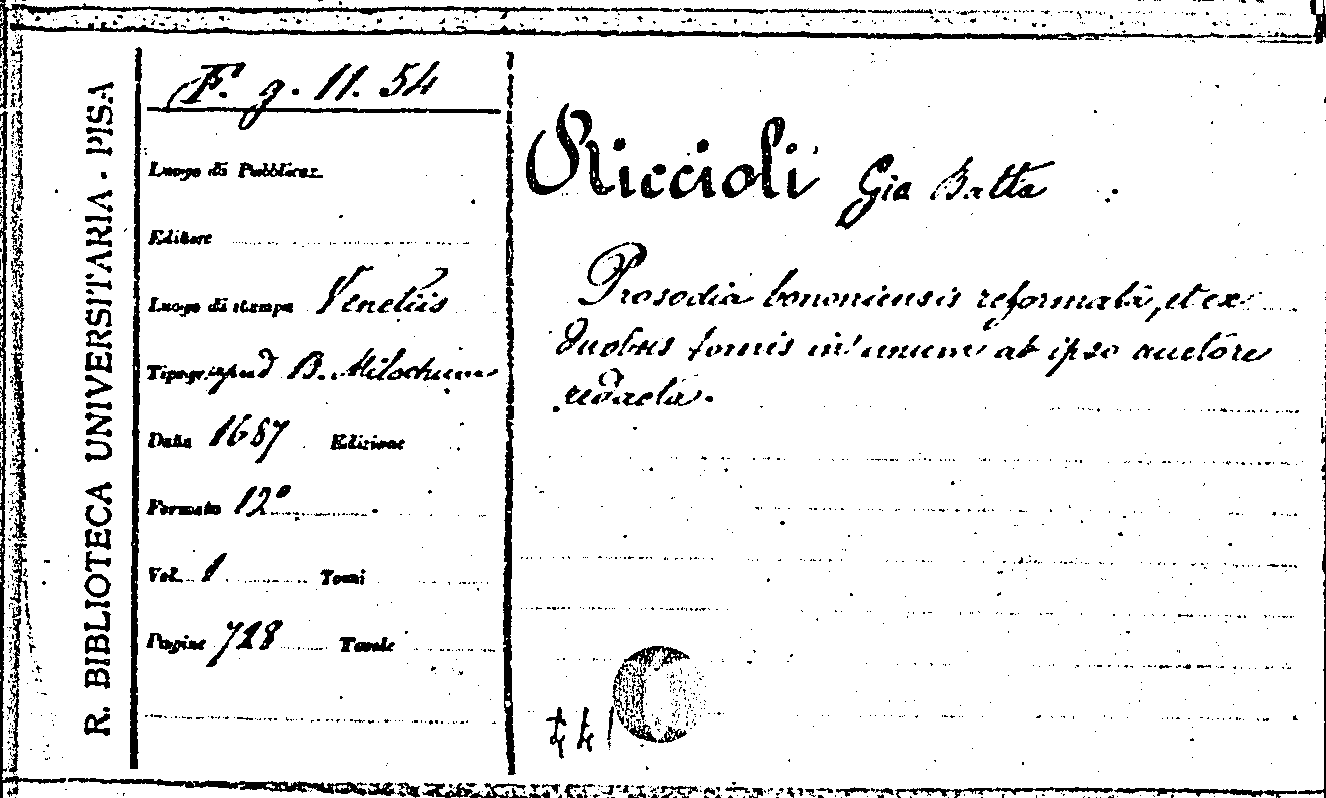 R. BIBLIOTECA UNIVERSITARIA - PISA
F. g. 11. 54
Luogo di Pubblicaz.
Editore
Luogo di stampa Venetiis
Tipogr. apud B. Milochum
Data 1687 Edizione
Formato 12°
Vol. 1 Tomi
Pagine 728 Tavole
Riccioli Gia Batta :
Prosodia bononiensis reformata, et ex
duobus tomis in unum ab ipso auctore
redacta.